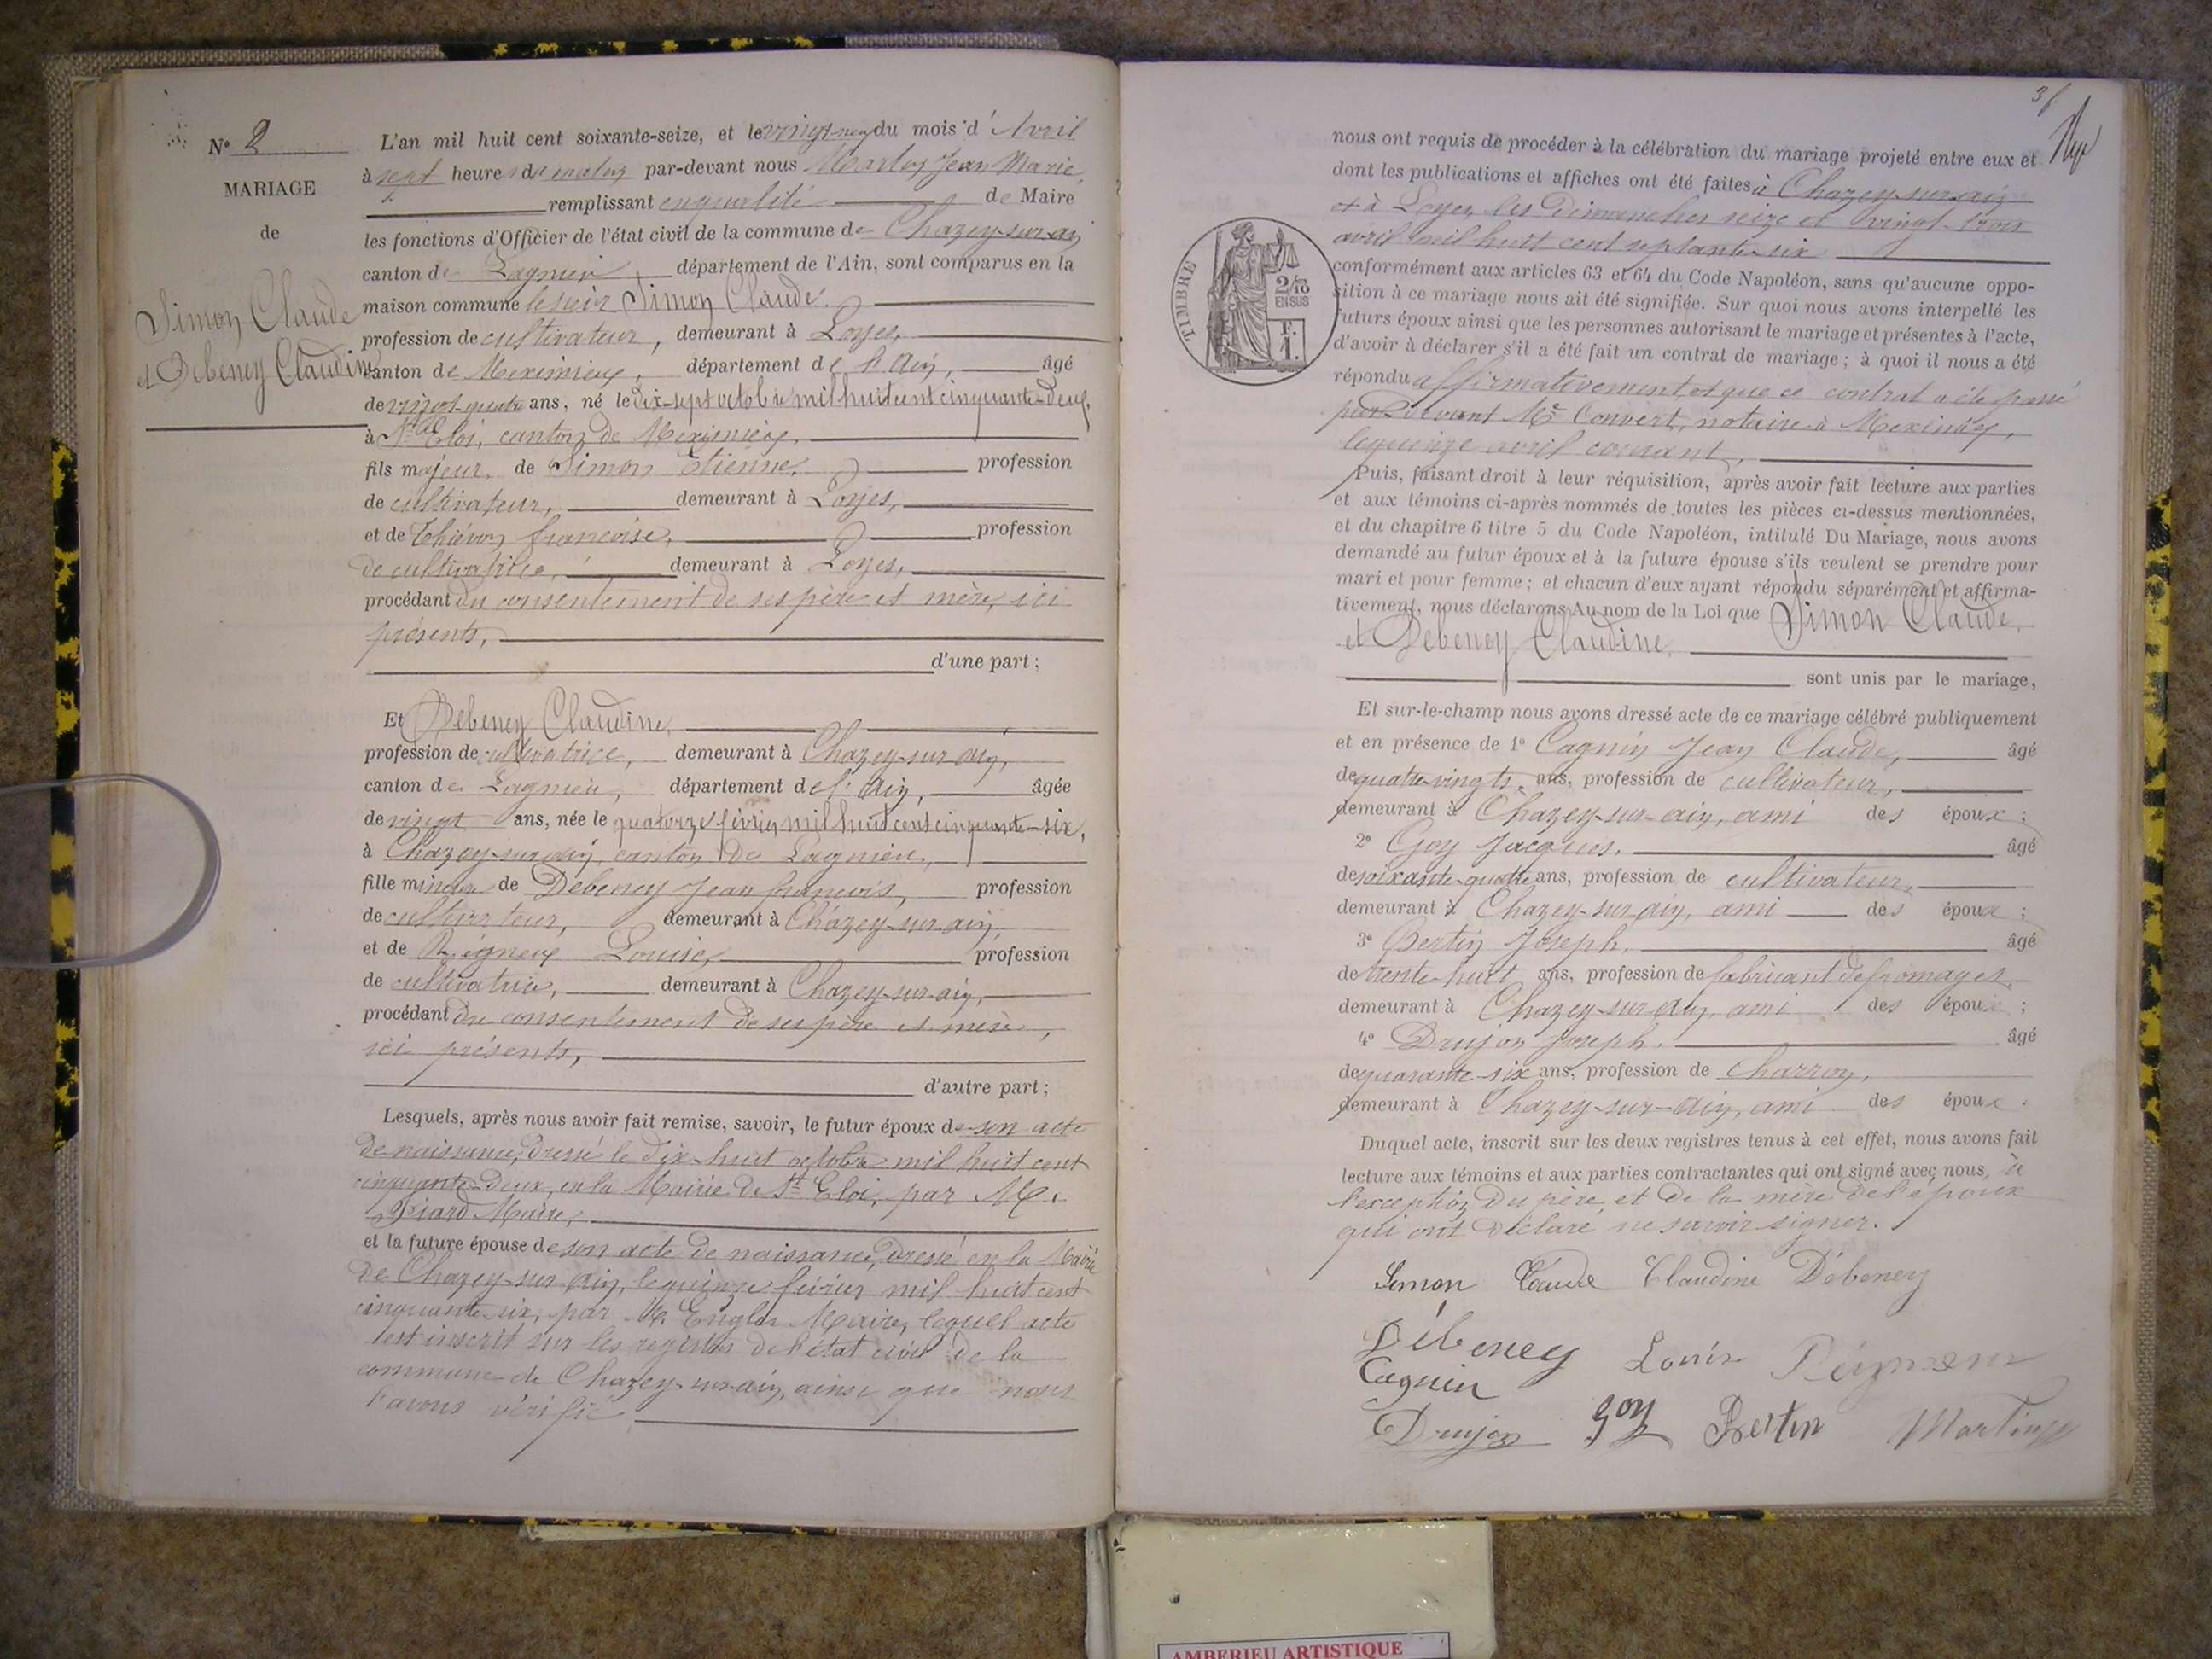 N° 2
MARIAGE
de
Simon Claude
et Debeney Claudine
L'an mil huit cent soixante-seize, et le vingt-neuf du mois d'Avril
à sept heures du matin par-devant nous Jean Marie,
remplissant en qualité de Maire
les fonctions d'Officier de l'état civil de la commune de Chazey-sur-ain
canton de Lagnieu département de l'Ain, sont comparus en la
maison commune Simon Claude.
profession de cultivateur, demeurant à Loyes,
canton de Meximieux, département de l'Ain, âgé
de vingt-quatre ans, né le dix-sept octobre mil huit cent cinquante-deux,
à St Eloi, canton de Meximieux,
fils majeur de Simon Etienne. profession
de cultivateur, demeurant à Loyes,
et de Thiévon françoise, profession
de cultivatrice, demeurant à Loyes,
procédant du consentement de ses père et mère, ici
présents,
d'une part ;
Et Debeney Claudine,
profession de cultivatrice, demeurant à Chazey-sur-ain,
canton de Lagnieu, département de l'Ain, âgée
de vingt ans, née le quatorze février mil huit cent cinquante-six,
à Chazey-sur-ain, canton de Lagnieu,
fille mineure de Debeney Jean françois, profession
de cultivateur, demeurant à Chazey-sur-ain,
et de Réigneux Louise, profession
de cultivatrice, demeurant à Chazey-sur-ain,
procédant du consentement de ses père et mère,
ici présents,
d'autre part ;
Lesquels, après nous avoir fait remise, savoir, le futur époux de son acte
de naissance, dressé le dix-huit octobre mil huit cent
cinquante-deux, en la Mairie de St Eloi, par M.
Piard Maire,
et la future épouse de son acte de naissance, dressé en la Mairie
de Chazey-sur-ain, le quinze février mil huit cent
cinquante-six, par M. Maire, lequel acte
est inscrit sur les registres de l'état civil de la
commune de Chazey-sur-ain, ainsi que nous
l'avons vérifié
3
nous ont requis de procéder à la célébration du mariage projeté entre eux et
dont les publications et affiches ont été faites à Chazey-sur-ain
et à Loyes, les dimanches seize et vingt-trois
avril mil huit cent septante-six
TIMBRE
2/10
EN SUS
F.
1.
conformément aux articles 63 et 64 du Code Napoléon, sans qu'aucune oppo-
sition à ce mariage nous ait été signifiée. Sur quoi nous avons interpellé les
futurs époux ainsi que les personnes autorisant le mariage et présentes à l'acte,
d'avoir à déclarer s'il a été fait un contrat de mariage ; à quoi il nous a été
répondu affirmativement, et que ce contrat a été passé
par devant Me Convert, notaire à Meximieux,
le quinze avril courant,
Puis, faisant droit à leur réquisition, après avoir fait lecture aux parties
et aux témoins ci-après nommés de toutes les pièces ci-dessus mentionnées,
et du chapitre 6 titre 5 du Code Napoléon, intitulé Du Mariage, nous avons
demandé au futur époux et à la future épouse s'ils veulent se prendre pour
mari et pour femme ; et chacun d'eux ayant répondu séparément et affirma-
tivement, nous déclarons Au nom de la Loi que Simon Claude,
et Debeney Claudine,
sont unis par le mariage,
Et sur-le-champ nous avons dressé acte de ce mariage célébré publiquement
et en présence de 1° Cagnin Jean Claude, âgé
de quatre-vingts ans, profession de cultivateur,
demeurant à Chazey-sur-ain, ami des époux ;
2° Goy Jacques, âgé
de soixante-quatre ans, profession de cultivateur,
demeurant à Chazey-sur-ain, ami des époux ;
3° Bertin Joseph, âgé
de trente-huit ans, profession de fabricant de fromages,
demeurant à Chazey-sur-ain, ami des époux ;
4° Drujon Joseph. âgé
de quarante-six ans, profession de charron,
demeurant à Chazey-sur-ain, ami des époux.
Duquel acte, inscrit sur les deux registres tenus à cet effet, nous avons fait
lecture aux témoins et aux parties contractantes qui ont signé avec nous, à
l'exception du père et de la mère de l'époux
qui ont déclaré ne savoir signer.
Simon Claude Claudine Débeney
Débeney Louise Réigneux
Cagnin
Drujon Goy Bertin Martin
AMBERIEU ARTISTIQUE